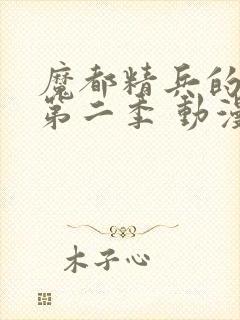 魔都精兵的
第二季 動漫
木子心